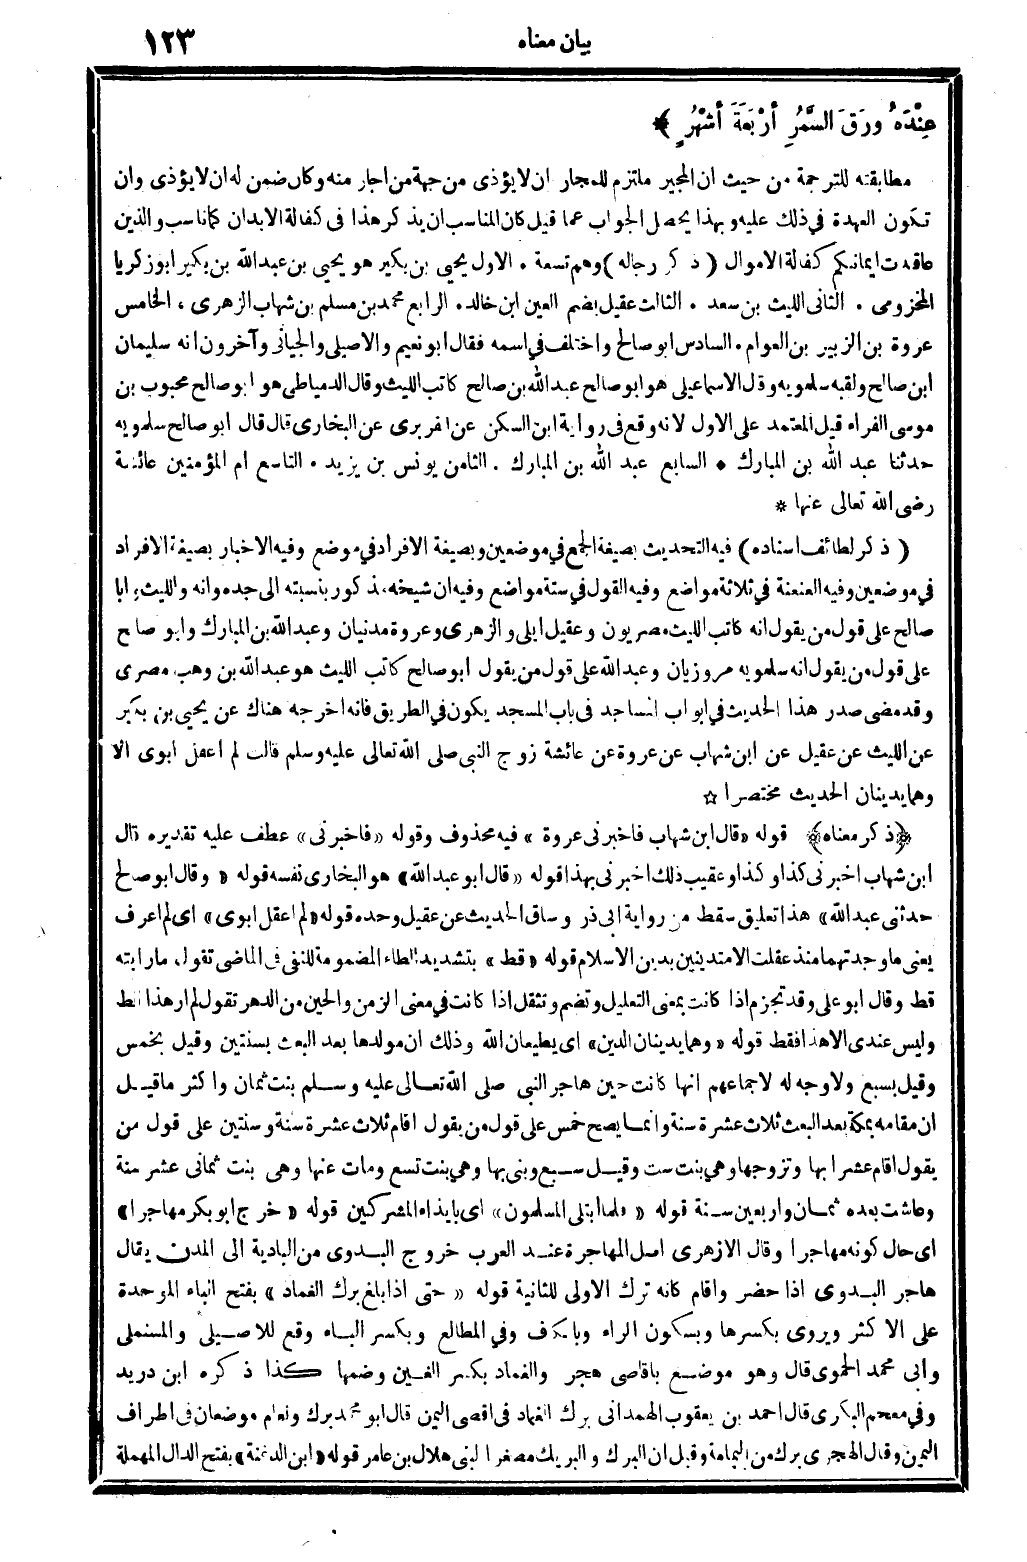 بيان معناه
١٢٣
عِنْدَهُ ورَقَ السَّمُرِ أرْبَعَةَ أشْهُرٍ ﴾
مطابقته للترجمة من حيث ان المجير ملتزم للمجار ان لا يؤذى من جهة من اجار منه وكان ضمن له ان لا يؤذى وان
تكون العهدة في ذلك عليه وبهذا يحصل الجواب عما قيل كان المناسب ان يذكر هذا فى كفالة الابدان كما ناسب والذين
عاقدت ايمانكم كفالة الاموال ( ذكر رجاله ) وهم تسعة . الاول يحيى بن بكير هو يحيى بن عبدالله بن بكير ابو زكريا
المخزومى . الثانى الليث بن سعد . الثالث عقيل بضم العين ابن خالد . الرابع محمد بن مسلم بن شهاب الزهرى . الخامس
عروة بن الزبير بن العوام . السادس ابو صالح واختلف في اسمه فقال ابو نعيم والاصيلى والجيانى وآخرون انه سليمان
ابن صالح ولقبه سلمويه وقال الاسماعيلى هو ابو صالح عبدالله بن صالح كاتب الليث وقال الدمياطى هو ابو صالح محبوب بن
موسى الفراء قيل المعتمد على الاول لانه وقع فى رواية ابن السكن عن الفربرى عن البخارى قال قال ابو صالح سلمويه
حدثنا عبد الله بن المبارك . السابع عبد الله بن المبارك . الثامن يونس بن يزيد . التاسع ام المؤمنين عائشة
رضى الله تعالى عنها *
( ذكر لطائف اسناده ) فيه التحديث بصيغة الجمع في موضعين وبصيغة الافراد في موضع وفيه الاخبار بصيغة الافراد
في موضعين وفيه العنعنة في ثلاثة مواضع وفيه القول في ستة مواضع وفيه ان شيخه مذكور بنسبته الى جده وانه والليث وابا
صالح على قول من يقول انه كاتب الليث مصريون وعقيل ايلى والزهرى وعروة مدنيان وعبدالله بن المبارك وابو صالح
على قول من يقول انه سلمويه مروزيان وعبدالله على قول من يقول ابو صالح كاتب الليث هو عبدالله بن وهب مصرى
وقد مضى صدر هذا الحديث في ابواب المساجد فى باب المسجد يكون في الطريق فانه اخرجه هناك عن يحيى بن بكير
عن الليث عن عقيل عن ابن شهاب عن عروة عن عائشة زوج النبى صلى الله تعالى عليه وسلم قالت لم اعقل ابوى الا
وهما يدينان الحديث مختصرا ☆
﴿ذكر معناه﴾ قوله «قال ابن شهاب فاخبرنى عروة » فيه محذوف وقوله «فاخبرنى» عطف عليه تقديره قال
ابن شهاب اخبرنى كذا وكذا وعقيب ذلك اخبرنى بهذا قوله «قال ابو عبدالله» هو البخارى نفسه قوله « وقال ابو صالح
حدثنى عبدالله» هذا تعليق سقط من رواية ابى ذر وساق الحديث عن عقيل وحده قوله «لم اعقل ابوى» اى لم اعرف
يعنى ما وجدتهما منذ عقلت الا متدينين بدين الاسلام قوله «قط » بتشديد الطاء المضمومة للنفى فى الماضى تقول ما رايته
قط وقال ابو على وقد تجزم اذا كانت بمعنى التعليل وتضم وتثقل اذا كانت في معنى الزمن والحين من الدهر تقول لم ار هذا قط
وليس عندى الا هذا فقط قوله « وهما يدينان الدين» اى يطيعان الله وذلك ان مولدها بعد البعث بسنتين وقيل بخمس
وقيل بسبع ولا وجه له لاجماعهم انها كانت حين هاجر النبى صلى الله تعالى عليه وسلم بنت ثمان واكثر ما قيل
ان مقامه بمكة بعد البعث ثلاث عشرة سنة وانما يصح خمس على قول من يقول اقام ثلاث عشرة سنة وسنتين على قول من
يقول اقام عشرا بها وتزوجها وهي بنت ست وقيل سبع وبنى بها وهي بنت تسع ومات عنها وهى بنت ثمانى عشر سنة
وعاشت بعده ثمان واربعين سنة قوله « فلما ابتلى المسلمون» اى بايذاء المشركين قوله « خرج ابو بكر مهاجرا»
اى حال كونه مهاجرا وقال الازهرى اصل المهاجرة عند العرب خروج البدوى من البادية الى المدن يقال
هاجر البدوى اذا حضر واقام كانه ترك الاولى للثانية قوله « حتى اذا بلغ برك الغماد » بفتح الباء الموحدة
على الاكثر ويروى بكسرها وبسكون الراء وبالكاف وفي المطالع وبكسر الباء وقع للاصيلى والمستملى
وأبى محمد الحموى قال وهو موضع باقاصى هجر والغماد بكسر الغين وضمها كذا ذكره ابن دريد
وفي معجم البكرى قال احمد بن يعقوب الهمدانى برك الغماد فى اقصى اليمن قال ابو محمد برك ونعام موضعان فى اطراف
اليمن وقال الهجرى برك من اليمامة وقيل ان البرك والبريك مصغرا لبنى هلال بن عامر قوله «ابن الدغنة» بفتح الدال المهملة